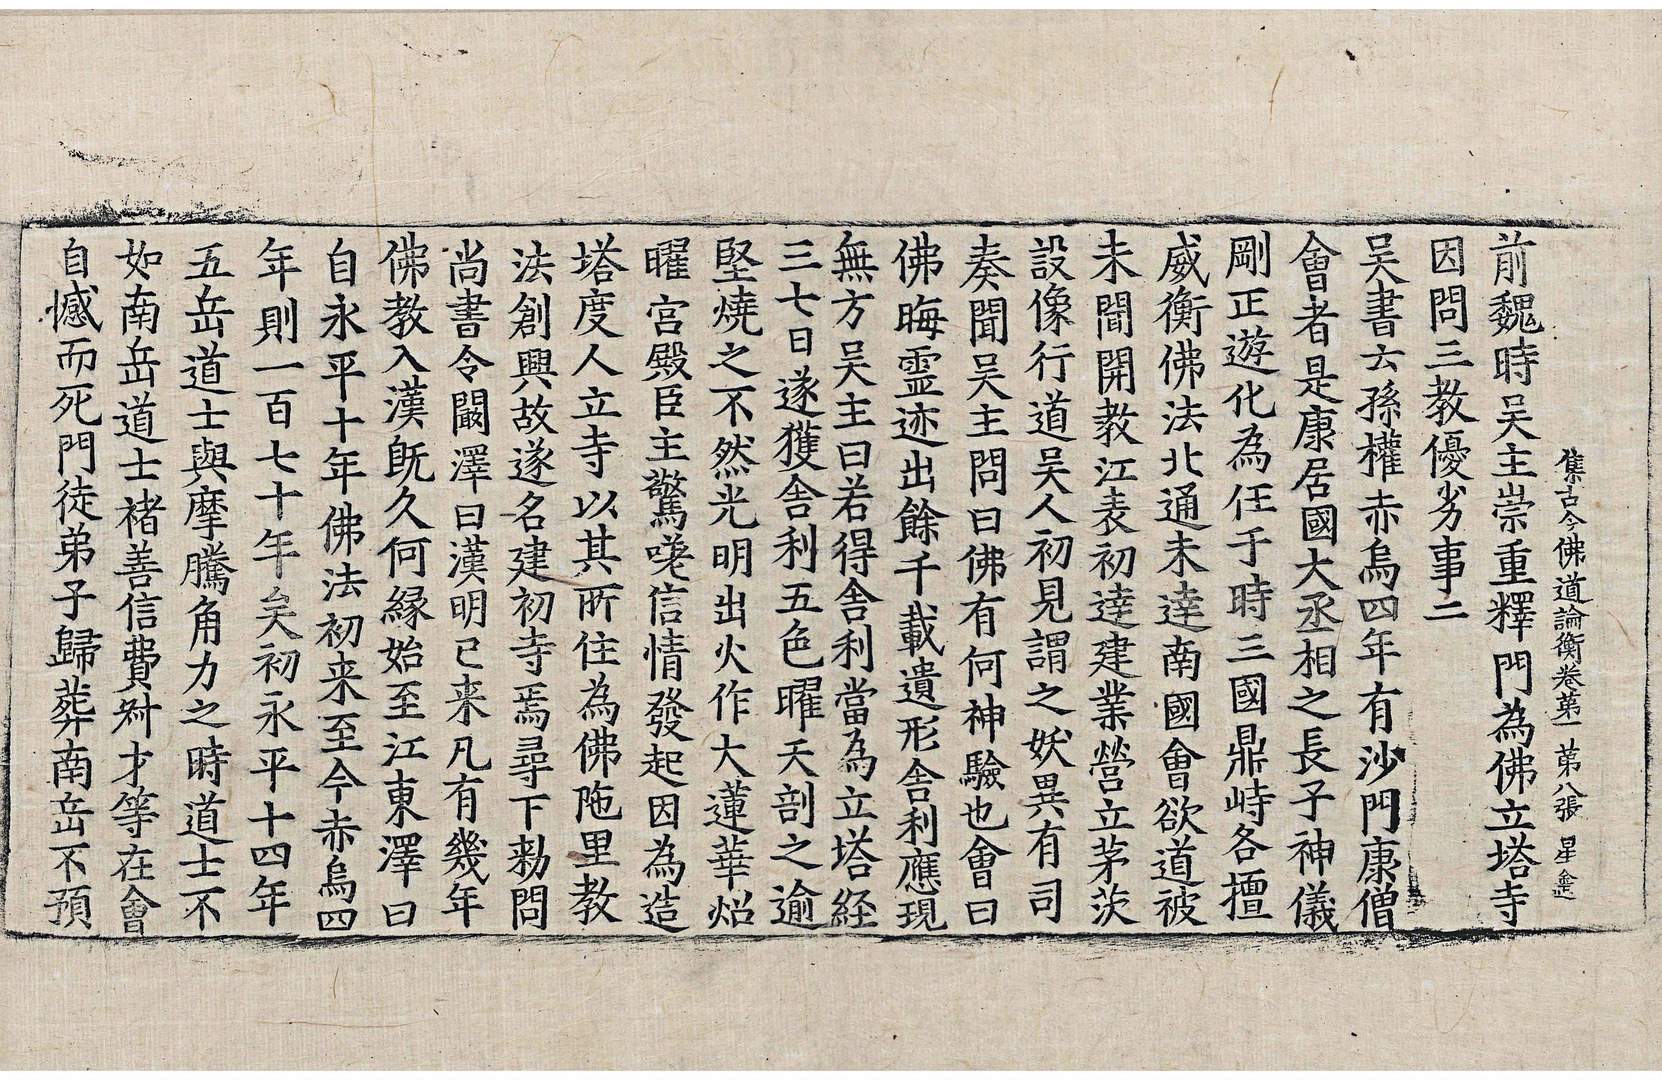 集古今佛道論衡卷第一 第八張 星
前魏時吴主崇重釋門為佛立塔寺
因問三教優劣事二
吴書云孫權赤烏四年有沙門康僧
會者是康居國大丞相之長子神儀
剛正遊化為任于時三國鼎峙各擅
威衡佛法北通未達南國會欲道被
未聞開教江表初達建業營立茅茨
設像行道吴人初見謂之妖異有司
奏聞吴主問曰佛有何神驗也會曰
佛晦靈迹出餘千載遺形舍利應現
無方吴主曰若得舍利當為立塔経
三七日遂獲舍利五色曜天剖之逾
堅燒之不然光明出火作大蓮華炤
曜宫殿臣主驚嗟信情發起因為造
塔度人立寺以其所住為佛陁里教
法創興故遂名建初寺焉尋下勑問
尚書令闞澤曰漢明已来凡有幾年
佛教入漢旣久何緣始至江東澤曰
自永平十年佛法初来至今赤烏四
年則一百七十年矣初永平十四年
五岳道士與摩騰角力之時道士不
如南岳道士褚善信費叔才等在會
自憾而死門徒弟子歸葬南岳不預